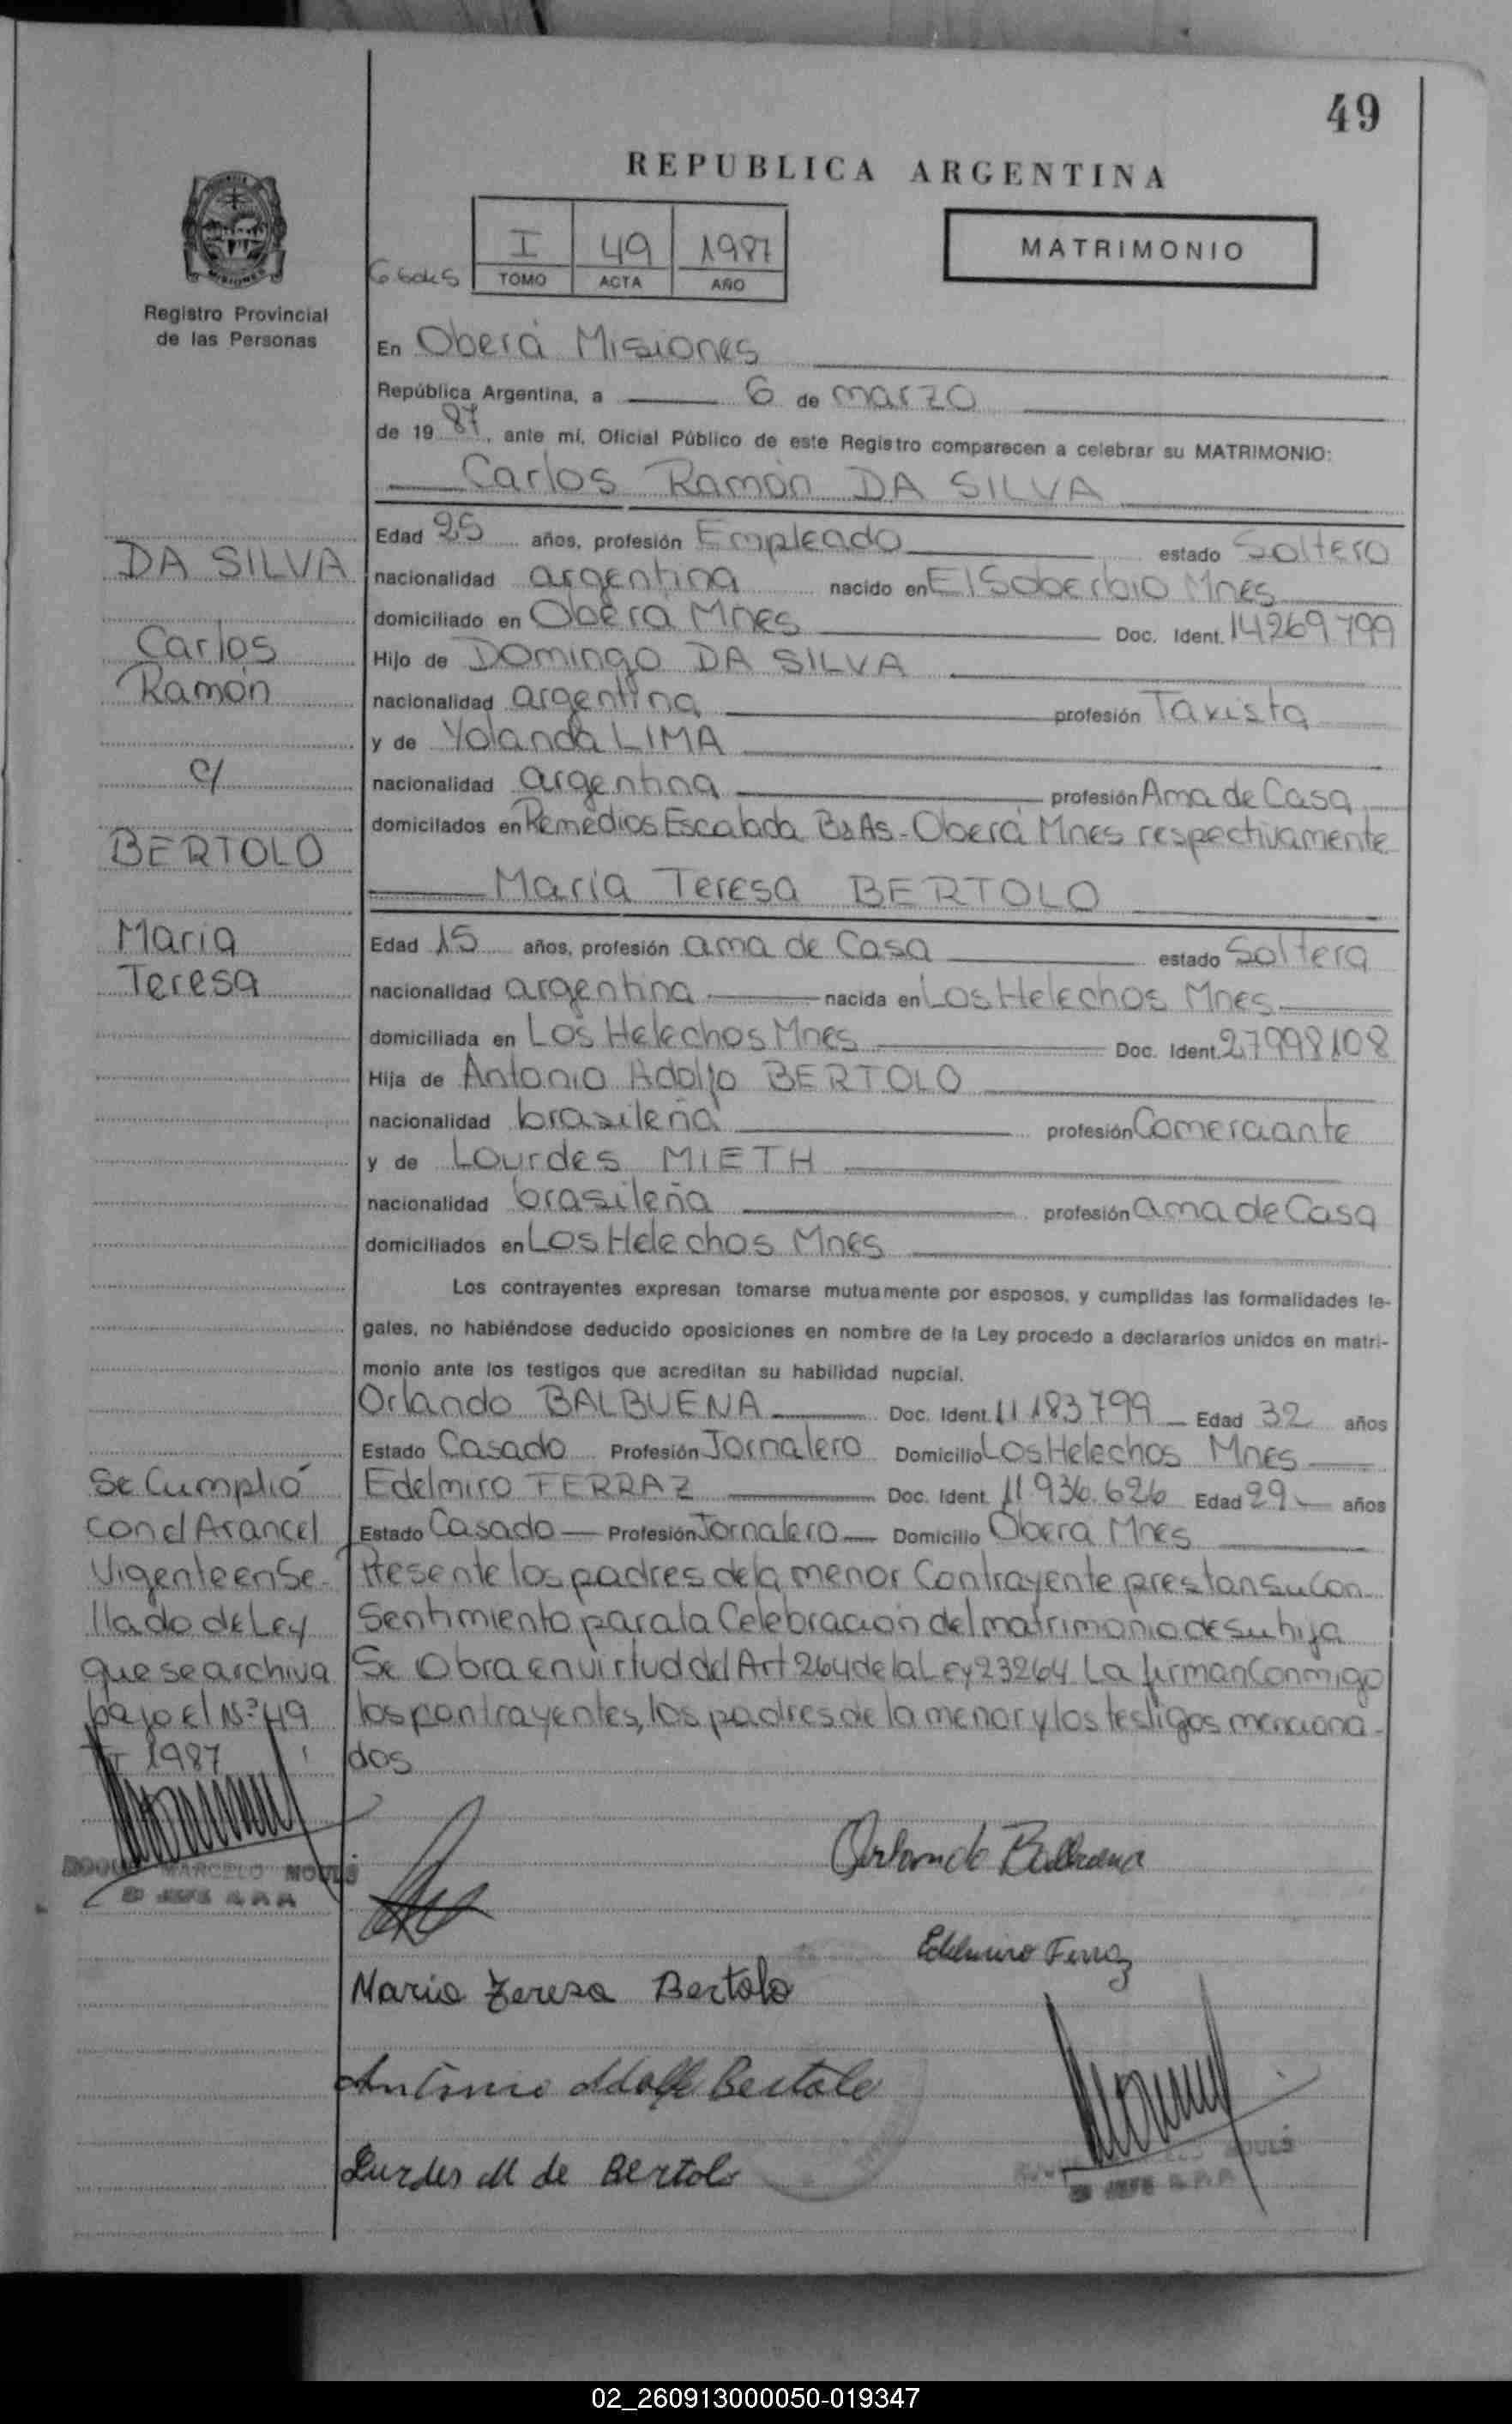 49
REPUBLICA ARGENTINA
I 49 1987
TOMO ACTA AÑO
MATRIMONIO
Registro Provincial
de las Personas
En Oberá Misiones
República Argentina, a 6 de marzo
de 1987, ante mí, Oficial Público de este Registro comparecen a celebrar su MATRIMONIO:
Carlos Ramón DA SILVA
Edad 25 años, profesión Empleado estado Soltero
nacionalidad argentina nacido en El Soberbio Mnes
domiciliado en Oberá Mnes Doc. Ident. 14269799
Hijo de Domingo DA SILVA
nacionalidad argentina profesión Taxista
y de Yolanda LIMA
nacionalidad argentina profesión Ama de Casa
domicilados en Remedios Escalada Bs As - Oberá Mnes respectivamente
María Teresa BERTOLO
Edad 15 años, profesión ama de Casa estado Soltera
nacionalidad argentina nacida en Los Helechos Mnes
domiciliada en Los Helechos Mnes Doc. Ident. 27998108
Hija de Antonio Adolfo BERTOLO
nacionalidad brasileña profesión Comerciante
y de Lourdes MIETH
nacionalidad brasileña profesión ama de Casa
domiciliados en Los Helechos Mnes
Los contrayentes expresan tomarse mutuamente por esposos, y cumplidas las formalidades le-
gales, no habiéndose deducido oposiciones en nombre de la Ley procedo a declararlos unidos en matri-
monio ante los testigos que acreditan su habilidad nupcial.
Orlando BALBUENA Doc. Ident. 11183799 Edad 32 años
Estado Casado Profesión Jornalero Domicilio Los Helechos Mnes
Edelmiro FERRAZ Doc. Ident. 11.936.626 Edad 29 años
Estado Casado Profesión Jornalero Domicilio Oberá Mnes
Presente los padres de la menor Contrayente prestan su Con
sentimiento para la Celebración del matrimonio de su hija
Se Obra en virtud del Art 264 de la Ley 23264 La firman Conmigo
los contrayentes, los padres de la menor y los testigos menciona-
dos
DA SILVA
Carlos
Ramón
c/
BERTOLO
María
Teresa
Se Cumplió
con el Arancel
Vigente en Se-
llado de Ley
que se archiva
bajo El Nº 49
T I 1987
MARCELO
Orlando Balbuena
Edelmiro Ferraz
Maria Teresa Bertolo
Antonio Adolfo Bertolo
Lurdes M de Bertolo
02_260913000050-019347